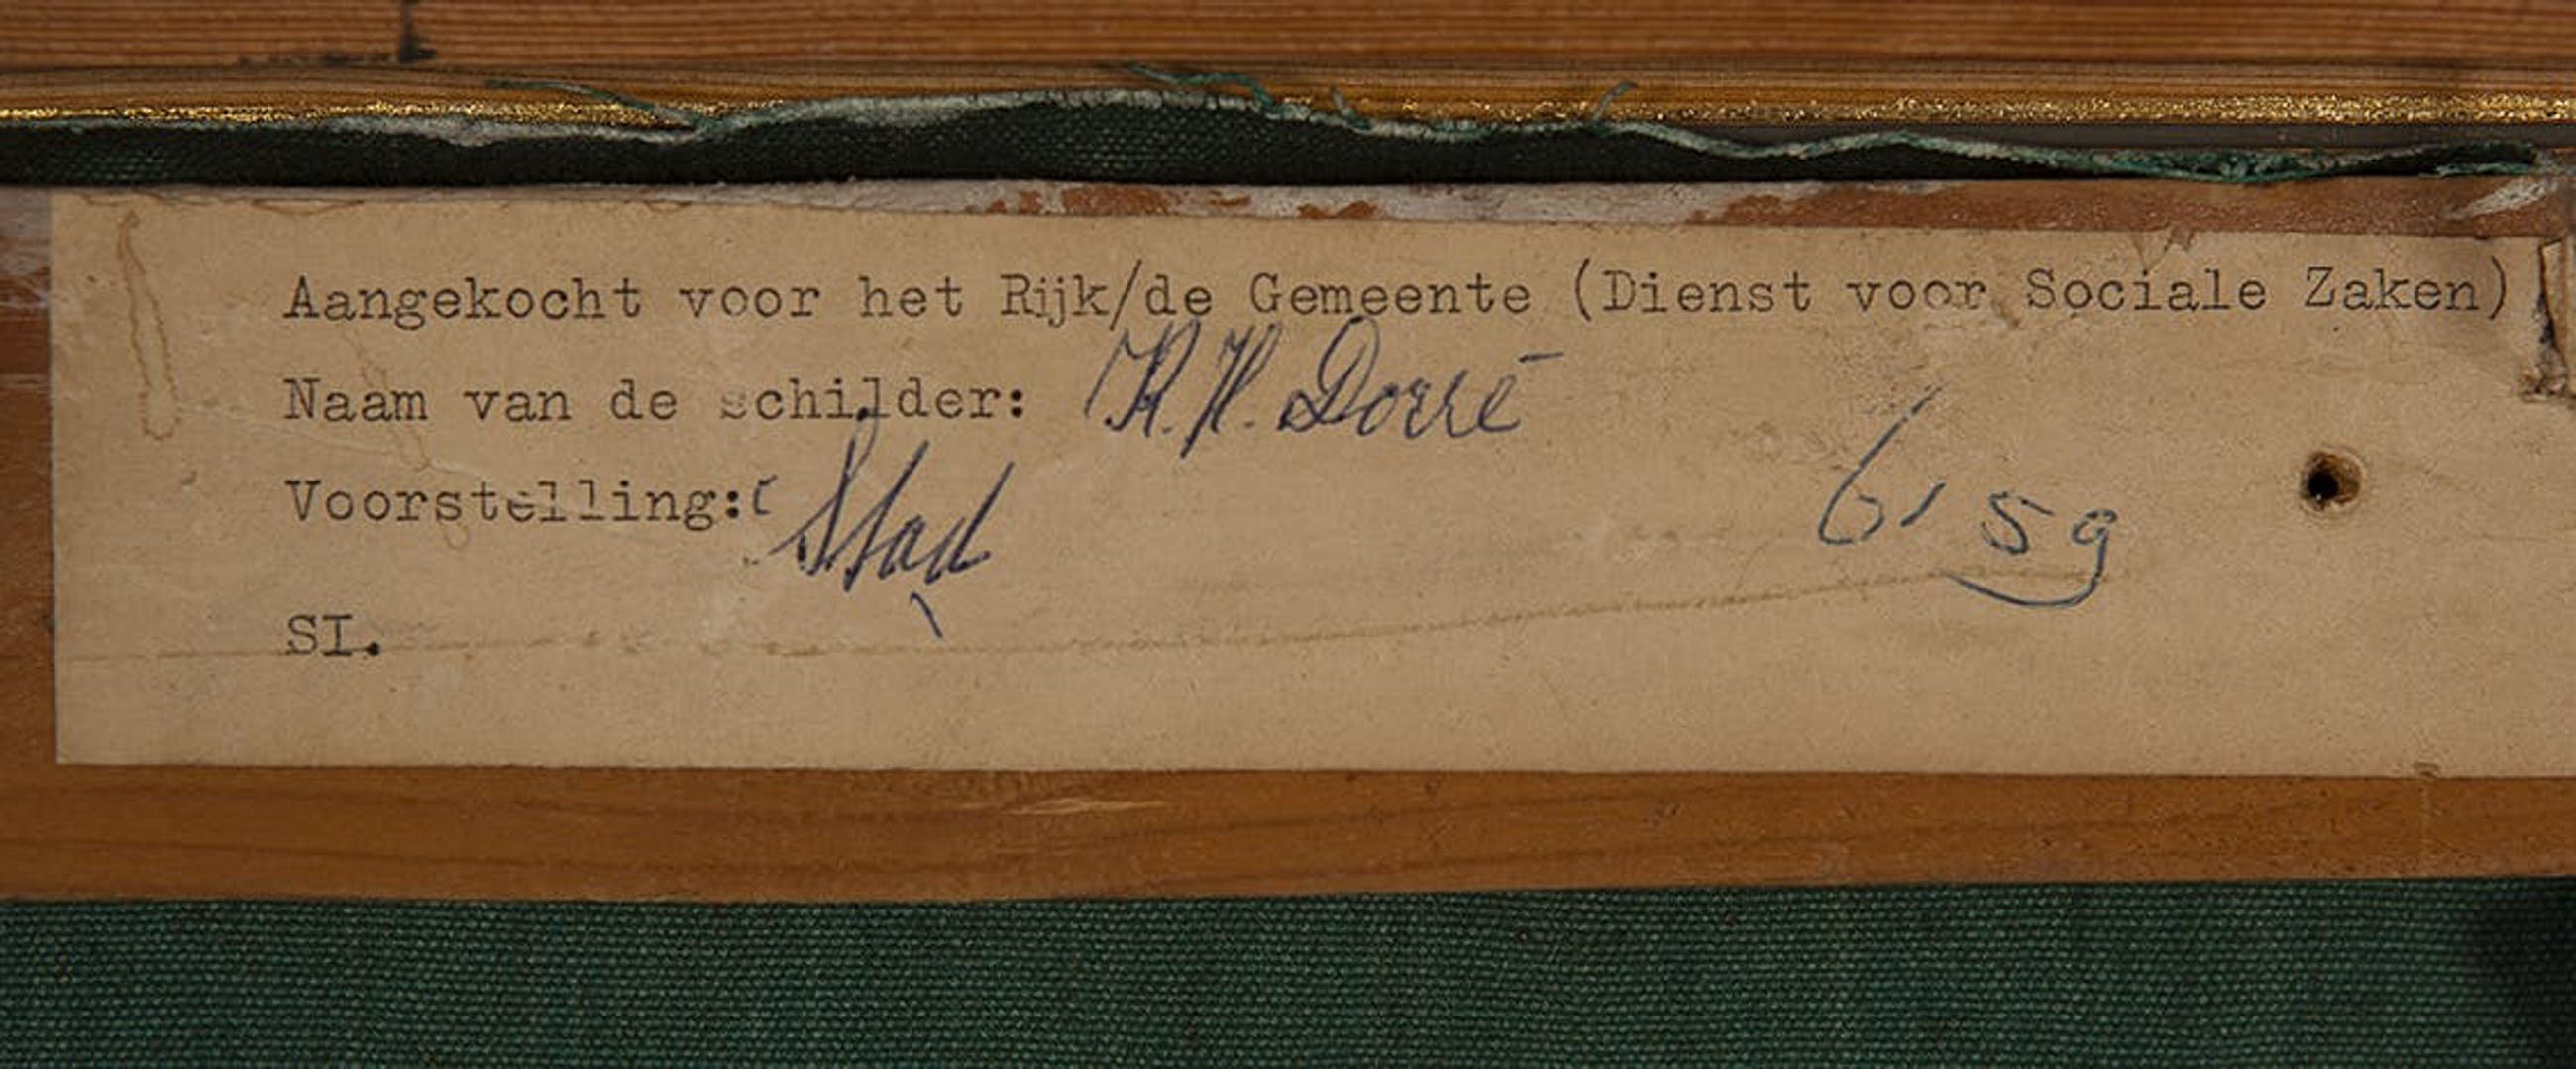 Aangekocht voor het Rijk/de Gemeente (Dienst voor Sociale Zaken)
Naam van de schilder: K.H. Dorré
Voorstelling: Stad
6' 59
SI.